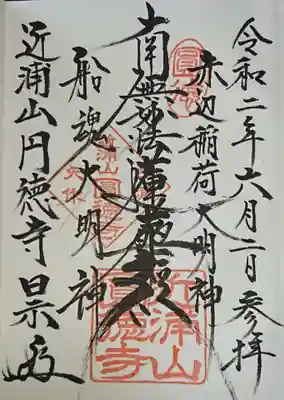 令和二年六月二日参拝
赤辺稲荷大明神
南無妙法蓮華経
船魂大明神
近浦山円徳寺
近浦山
圓徳寺